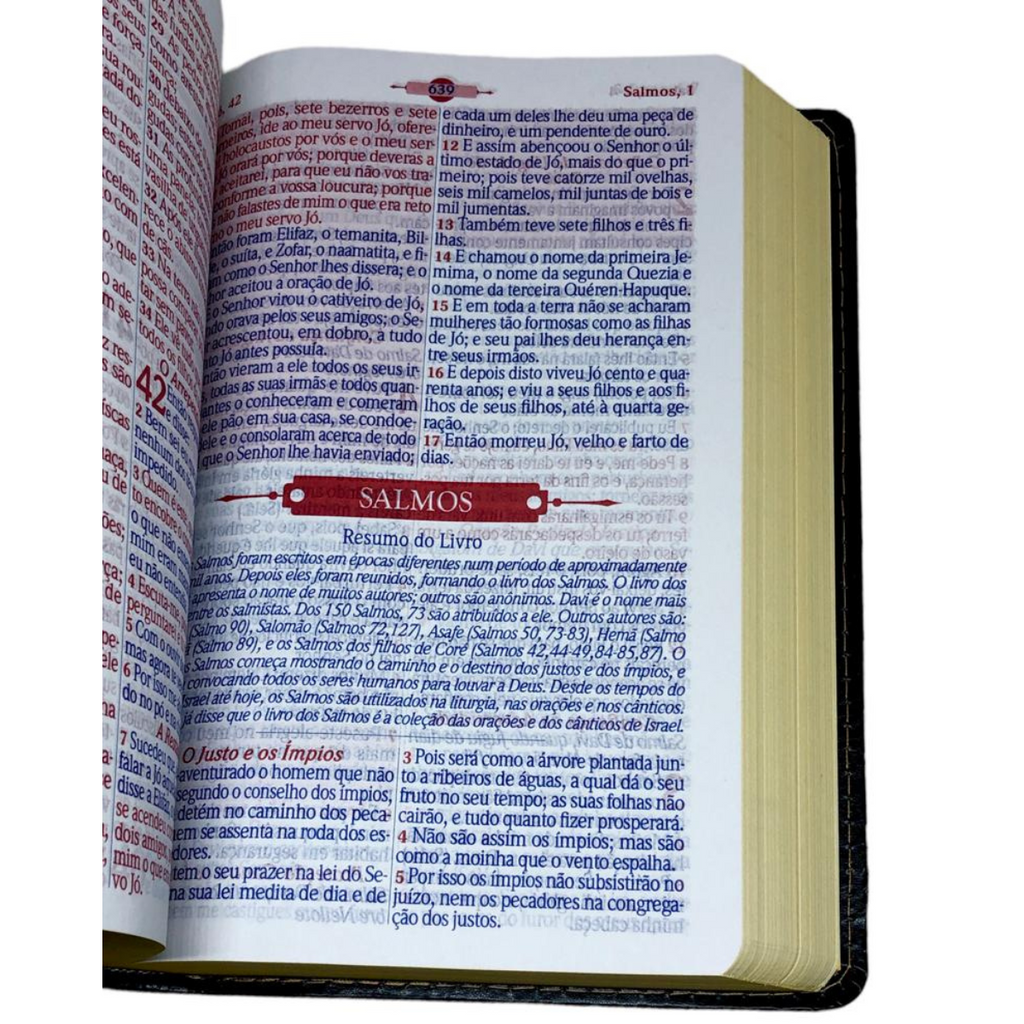 eu.
seus
força,
sua rou-
cada do
eu ros
s está
xcelen-
o com
o, que
o ade-
m se-
z res-
s são
íscas
naça,
u de
ões;
ça;
de
pe-
ele
na
29 As
como
lança
30 debaixo
gudas;
31 As
uma pan
vasilha de
32 Após ele
rece o abismo
de cãs.
33 Na terra
possa com
tar sem pa
34 Ele vê tudo
todos os
42
Então
e disse:
2 Bem sei
nenhum dos
impedido.
3 Quem é
to encobre o
o que não
mim eram
eu não enten
4 Escuta-me,
perguntarei e
5 Com o ouvir
mas agora te
6 Por isso me
do no pó e na
7 Sucedeu
falar a Jó
disse a Elifaz,
se acendeu
dois amigos,
mim o que era
vo Jó.
42
639
Salmos, 1
Tomai, pois, sete bezerros e sete
neiros, ide ao meu servo Jó, ofere-
holocaustos por vós e o meu ser-
Jó orará por vós; porque deveras a
aceitarei, para que eu não vos tra-
conforme a vossa loucura; porque
não falastes de mim o que era reto
o meu servo Jó.
ntão foram Elifaz, o temanita, Bil-
, o suíta, e Zofar, o naamatita, e fi-
m como o Senhor lhes dissera; e o
hor aceitou a oração de Jó.
o Senhor virou o cativeiro de Jó,
do orava pelos seus amigos; o Se-
r acrescentou, em dobro, a tudo
to Jó antes possuía.
ntão vieram a ele todos os seus ir-
todas as suas irmãs e todos quan-
antes o conheceram e comeram
ele pão em sua casa, se condoe-
ele e o consolaram acerca de todo
que o Senhor lhe havia enviado;
e cada um deles lhe deu uma peça de
dinheiro, e um pendente de ouro.
12 E assim abençoou o Senhor o úl-
timo estado de Jó, mais do que o pri-
meiro; pois teve catorze mil ovelhas,
seis mil camelos, mil juntas de bois e
mil jumentas.
13 Também teve sete filhos e três fi-
lhas.
14 E chamou o nome da primeira Je-
mima, o nome da segunda Quezia e
o nome da terceira Quéren-Hapuque.
15 E em toda a terra não se acharam
mulheres tão formosas como as filhas
de Jó; e seu pai lhes deu herança en-
tre seus irmãos.
16 E depois disto viveu Jó cento e qua-
renta anos; e viu a seus filhos e aos fi-
lhos de seus filhos, até à quarta ge-
ração.
17 Então morreu Jó, velho e farto de
dias.
SALMOS
Resumo do Livro
Salmos foram escritos em épocas diferentes num período de aproximadamente
mil anos. Depois eles foram reunidos, formando o livro dos Salmos. O livro dos
apresenta o nome de muitos autores; outros são anônimos. Davi é o nome mais
ntre os salmistas. Dos 150 Salmos, 73 são atribuídos a ele. Outros autores são:
(Salmo 90), Salomão (Salmos 72,127), Asafe (Salmos 50, 73-83), Hemã (Salmo
ã (Salmo 89), e os Salmos dos filhos de Coré (Salmos 42,44-49,84-85,87). O
s Salmos começa mostrando o caminho e o destino dos justos e dos ímpios, e
convocando todos os seres humanos para louvar a Deus. Desde os tempos do
Israel até hoje, os Salmos são utilizados na liturgia, nas orações e nos cânticos.
já disse que o livro dos Salmos é a coleção das orações e dos cânticos de Israel.
O Justo e os Ímpios
aventurado o homem que não
segundo o conselho dos ímpios,
detém no caminho dos peca-
nem se assenta na roda dos es-
dores.
tem o seu prazer na lei do Se-
na sua lei medita de dia e de
3 Pois será como a árvore plantada jun-
to a ribeiros de águas, a qual dá o seu
fruto no seu tempo; as suas folhas não
cairão, e tudo quanto fizer prosperará.
4 Não são assim os ímpios; mas são
como a moinha que o vento espalha.
5 Por isso os ímpios não subsistirão no
juízo, nem os pecadores na congrega-
ção dos justos.